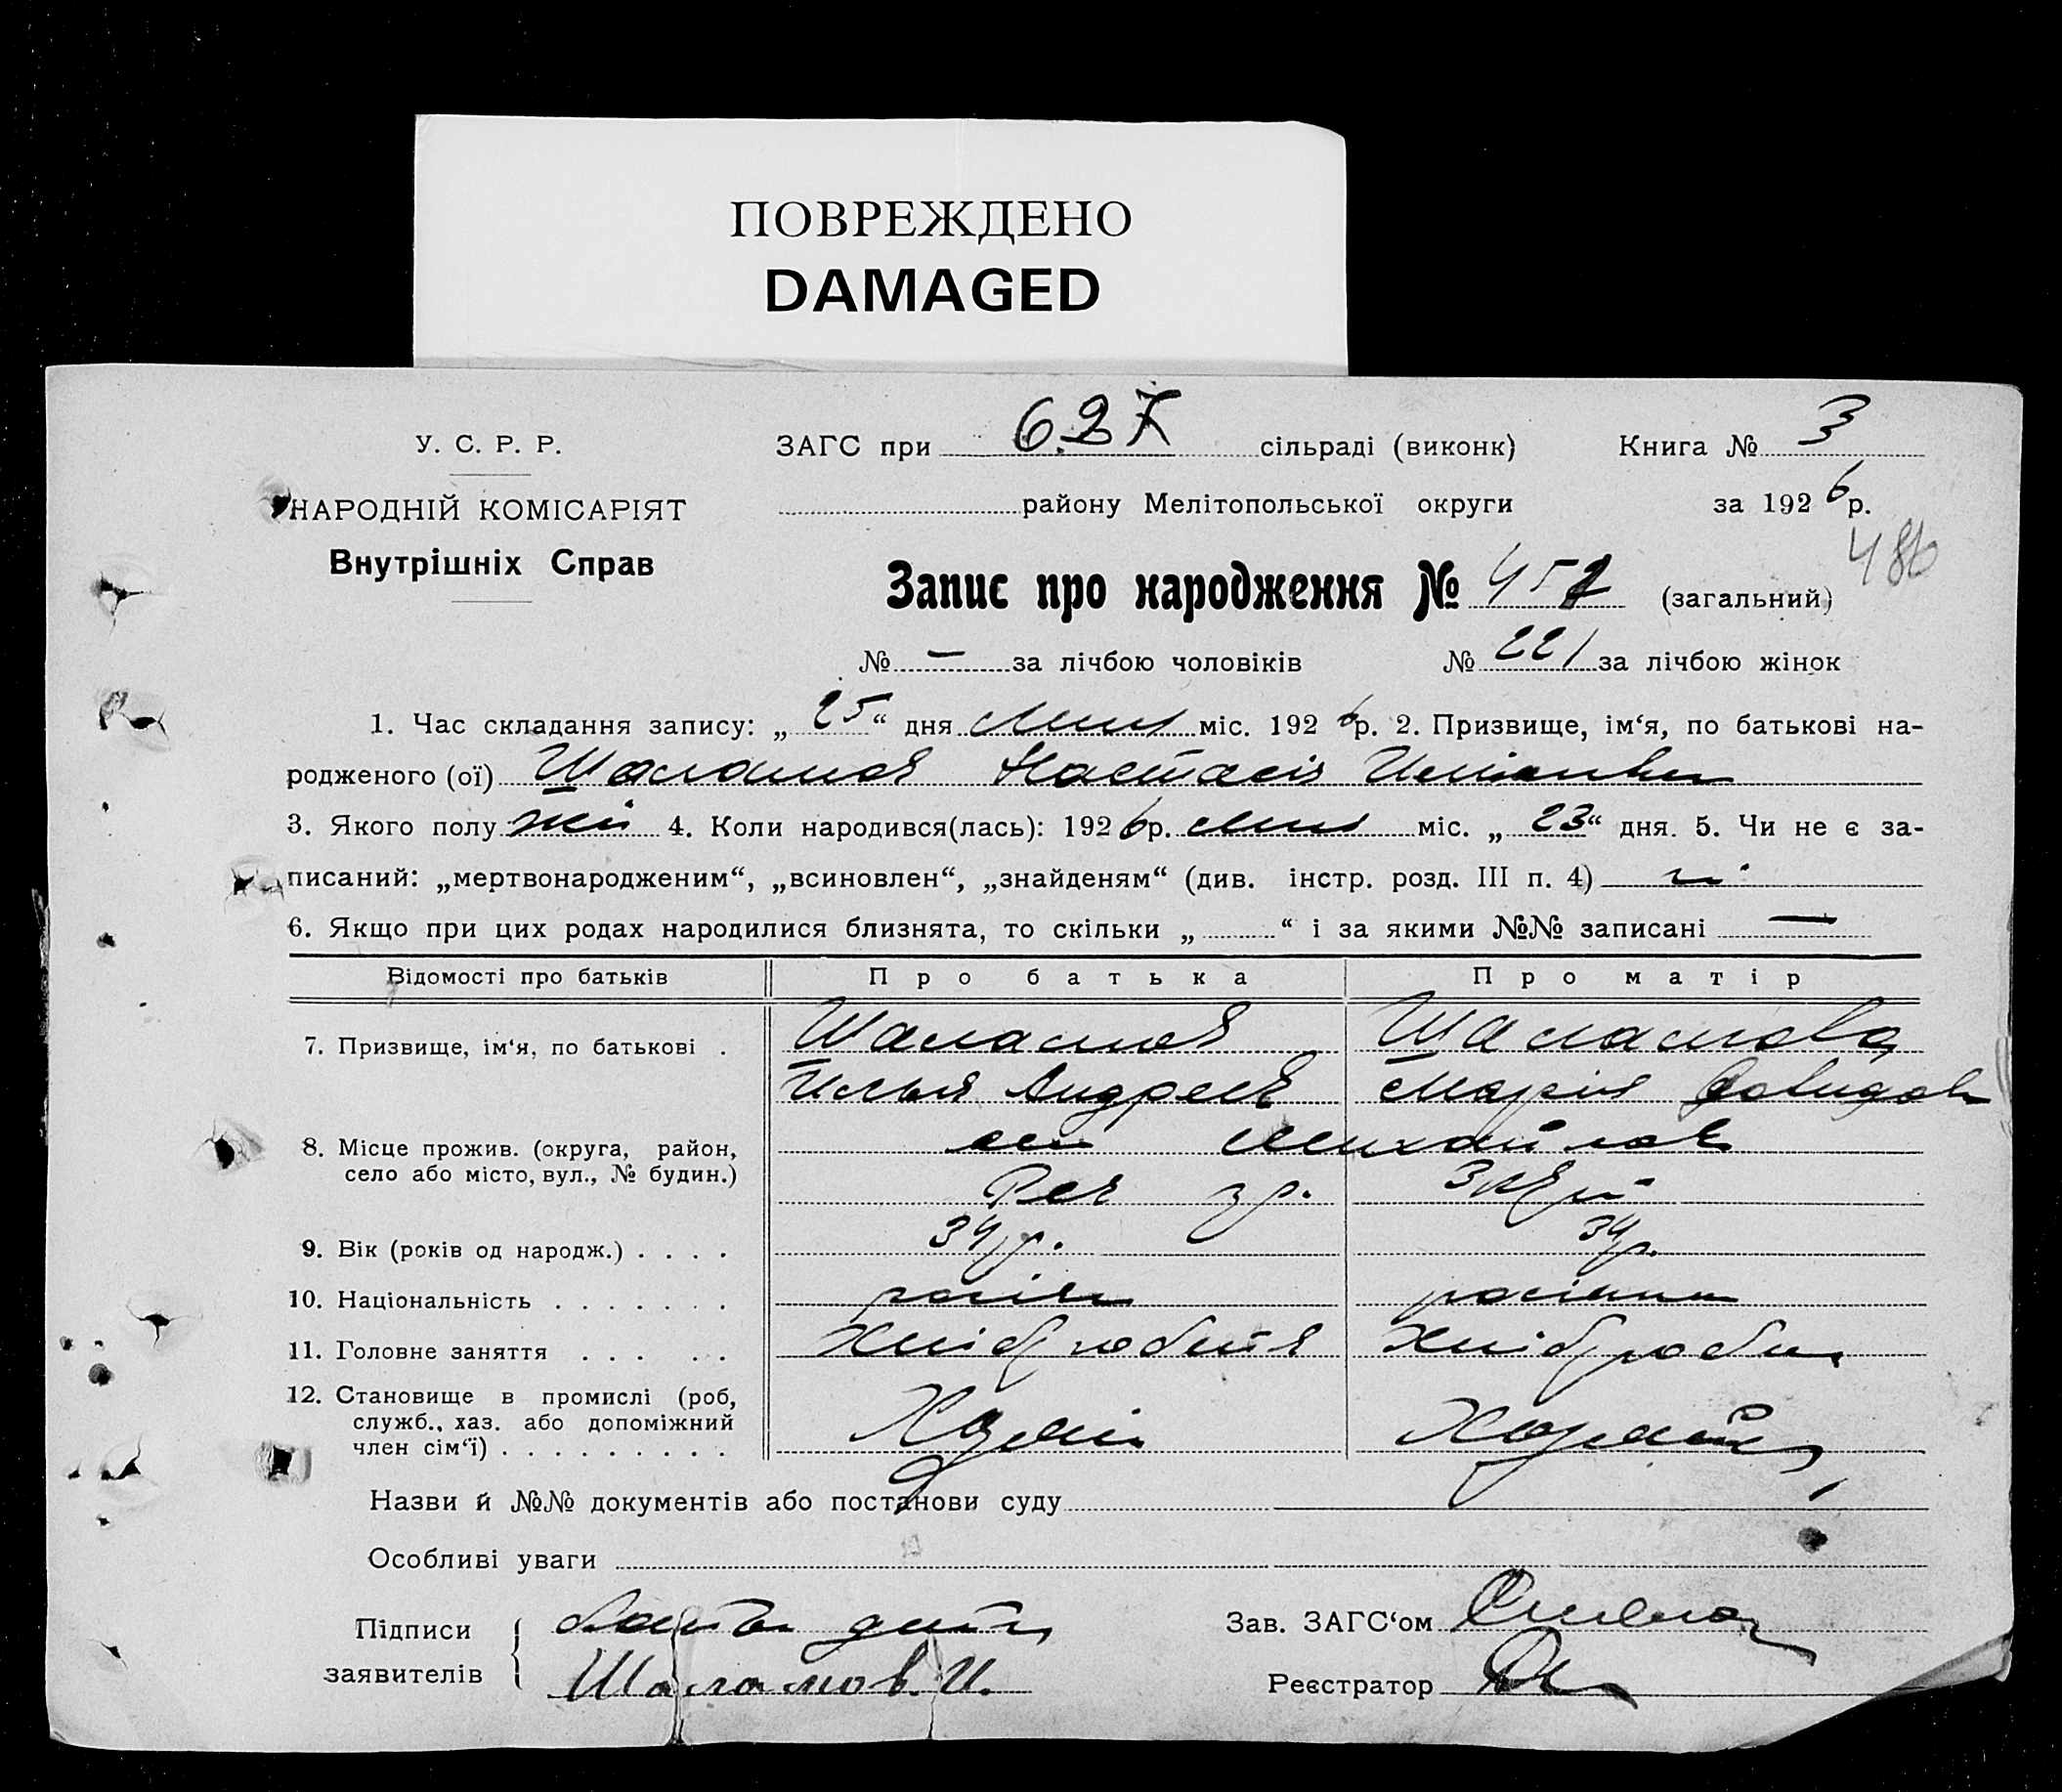 ПОВРЕЖДЕНО
DAMAGED
У. С. Р. Р.
НАРОДНІЙ КОМІСАРІЯТ
Внутрішніх Справ
ЗАГС при 627 сільраді (виконк) Книга № 3
району Мелітопольської округи за 1926 р.
486
Запис про народження № 457 (загальний)
№ — за лічбою чоловіків № 221 за лічбою жінок
1. Час складання запису: „25“ дня міс. 1926 р. 2. Призвище, ім‘я, по батькові на-
родженого (ої) Шаламов Настасія
3. Якого полу жін 4. Коли народився(лась): 1926 р. міс. „23“ дня. 5. Чи не є за-
писаний: „мертвонародженим“, „всиновлен“, „знайденям“ (див. інстр. розд. III п. 4) ні
6. Якщо при цих родах народилися близнята, то скільки „ “ і за якими №№ записані —
Відомості про батьків Про батька Про матір
7. Призвище, ім‘я, по батькові . Шаламов Шаламова
Илья Андреев Марія Давидов
8. Місце прожив. (округа, район,
село або місто, вул., № будин.)
Михайлов
9. Вік (років од народж.) . . . . 34 р. 34 р.
10. Національність . . . . . . . росіян росіянка
11. Головне заняття . . . . . Хліборобств Хліброб
12. Становище в промислі (роб,
служб., хаз. або допоміжний
член сім‘ї) . . . . . . . . . Хазяїн Хазяйка
Назви й №№ документів або постанови суду
Особливі уваги
Підписи
заявителів
Батько дити
Шаламов. И.
Зав. ЗАГС‘ом
Реєстратор